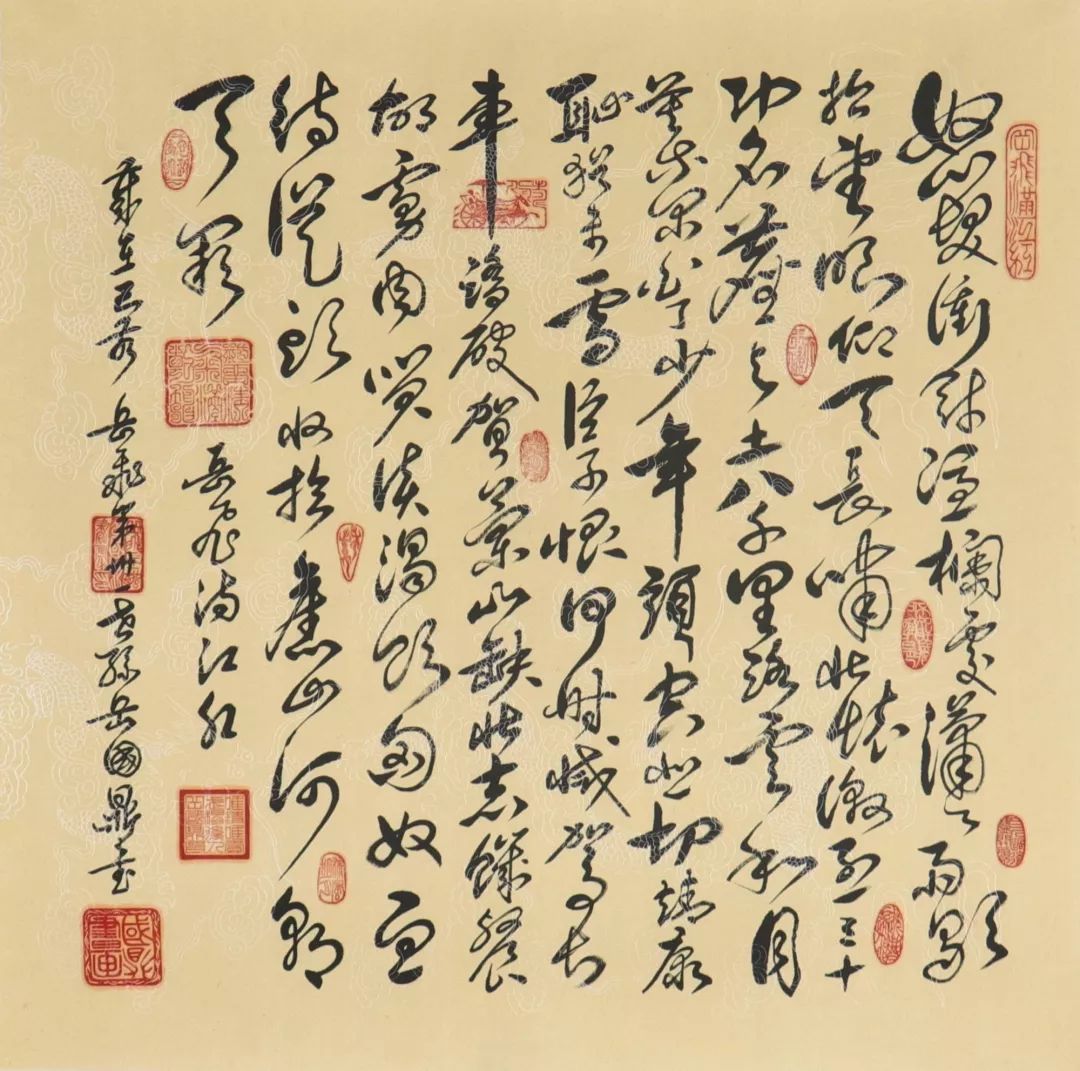 岳飛滿江紅
怒髮衝冠憑欄處瀟々雨歇
抬望眼仰天長嘯壯懷激烈三十
功名塵与土八千里路雲和月
莫等閒白了少年頭空悲切靖康
恥猶未雪臣子恨何時滅駕長
車踏破賀蘭山缺壯志饑餐
胡虜肉笑談渴飲匈奴血
待從頭收拾舊山河朝
天闕
岳飛滿江紅
歲在己亥 岳飛第卅一世孫岳國鼎書